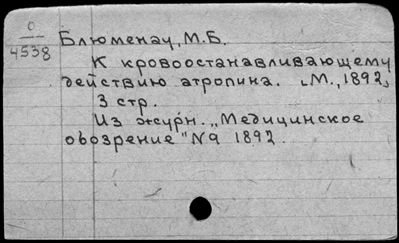 0
4538
Блюменау, М.Б.
К кровоостанавливающему
действию атропина. [М., 1892]
3 стр.
Из журн. „Медицинское
обозрение" № 9 1892